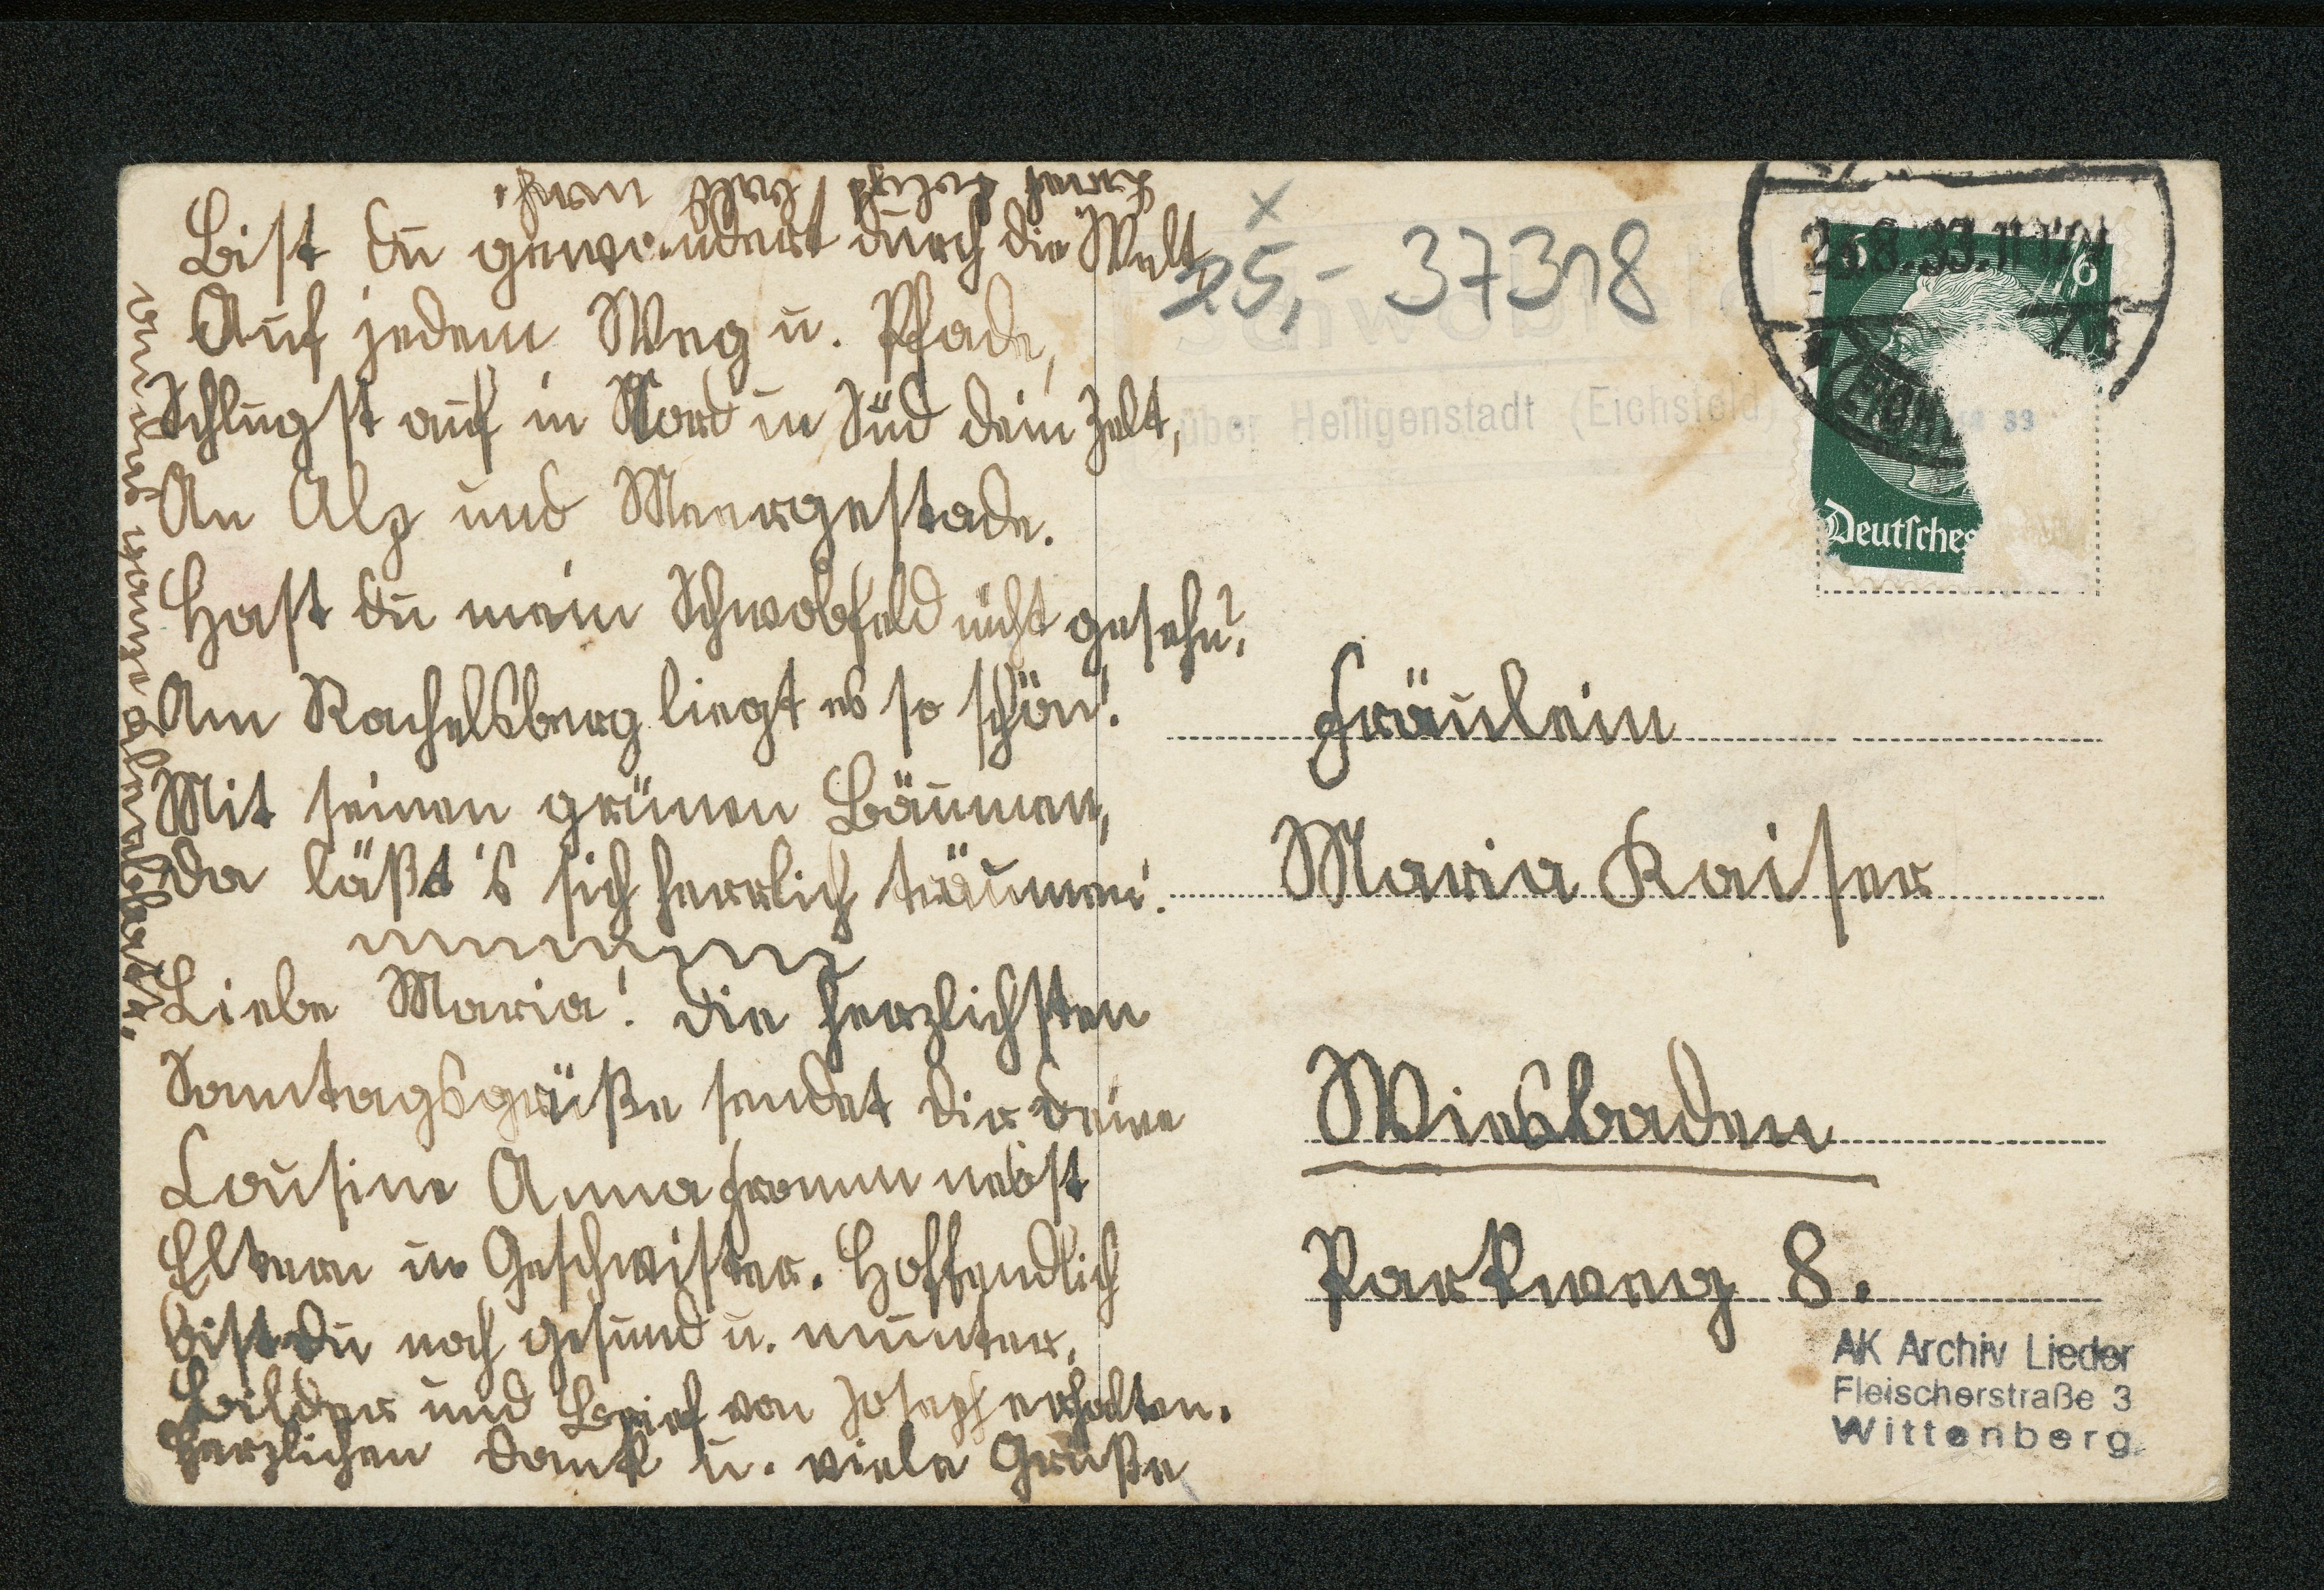 Bist du gewandert durch die Welt,
Auf jedem Weg u. Pfade,
Schlugst auf in Nord u. Süd dein Zelt,
An Alp und Meergestade.
Hast du mein Schwobfeld nicht gesehn?
Am Rachelsberg liegt es so schön!
Mit seinen grünen Bäumen,
Da läßt's sich herrlich träumen!
Liebe Maria! Die herzlichsten
Sonntagsgrüße sendet dir deine
Cousine Anna Fromm nebst
Eltern u. Geschwister. Hoffendlich
bist du noch gesund u. munter.
Bilder und Brief von Joseph erhalten.
Herzlichen Dank u. viele Grüße
25,- 37318
x
Schwobfeld
über Heiligenstadt (Eichsfeld)
6
6
.8.33.11
33
Deutsches
Fräulein
Maria Kaiser
Wiesbaden
Parkweg 8.
AK Archiv Lieder
Fleischerstraße 3
Wittenberg